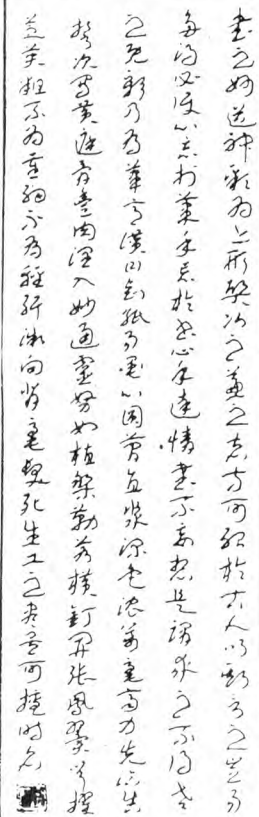 書之妙道神彩為上形質次之兼之者方可紹於古人以斯言之豈易
多得必使心忘於筆手忘於書心手達情書不妄想是謂求之不得考
之即彰乃為筆意讚曰剡紙易墨心圓管直漿深色濃萬毫齊力先臨告
誓次寫黃庭骨豐肉潤入妙通靈努如植槊勒若橫釘開張鳳翼聳擢
芝英粗不為重細不為輕纖微向背毫髮死生工之盡矣可擅時名